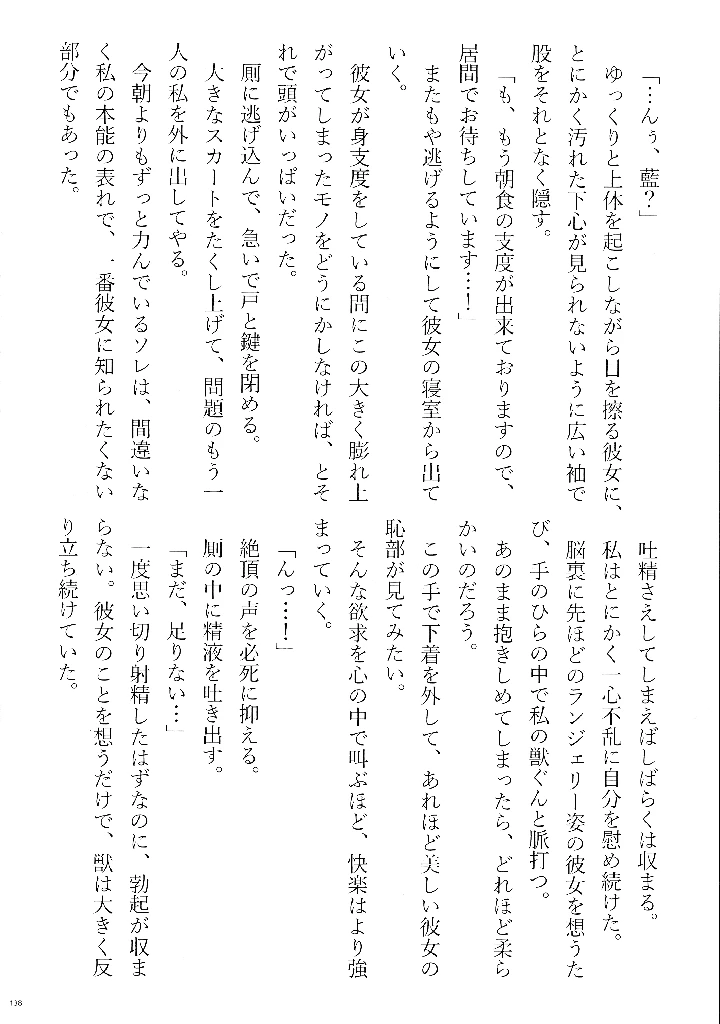 「…んぅ、藍？」
ゆっくりと上体を起こしながら目を擦る彼女に、
とにかく汚れた下心が見られないように広い袖で
股をそれとなく隠す。
「も、もう朝食の支度が出来ておりますので、
居間でお待ちしています…！」
またもや逃げるようにして彼女の寝室から出て
いく。
彼女が身支度をしている間にこの大きく膨れ上
がってしまったモノをどうにかしなければ、とそ
れで頭がいっぱいだった。
厠に逃げ込んで、急いで戸と鍵を閉める。
大きなスカートをたくし上げて、問題のもう一
人の私を外に出してやる。
今朝よりもずっと力んでいるソレは、間違いな
く私の本能の表れで、一番彼女に知られたくない
部分でもあった。
吐精さえしてしまえばしばらくは収まる。
私はとにかく一心不乱に自分を慰め続けた。
脳裏に先ほどのランジェリー姿の彼女を想うた
び、手のひらの中で私の獣ぐんと脈打つ。
あのまま抱きしめてしまったら、どれほど柔ら
かいのだろう。
この手で下着を外して、あれほど美しい彼女の
恥部が見てみたい。
そんな欲求を心の中で叫ぶほど、快楽はより強
まっていく。
「んっ…！」
絶頂の声を必死に抑える。
厠の中に精液を吐き出す。
「まだ、足りない…」
一度思い切り射精したはずなのに、勃起が収ま
らない。彼女のことを想うだけで、獣は大きく反
り立ち続けていた。
138